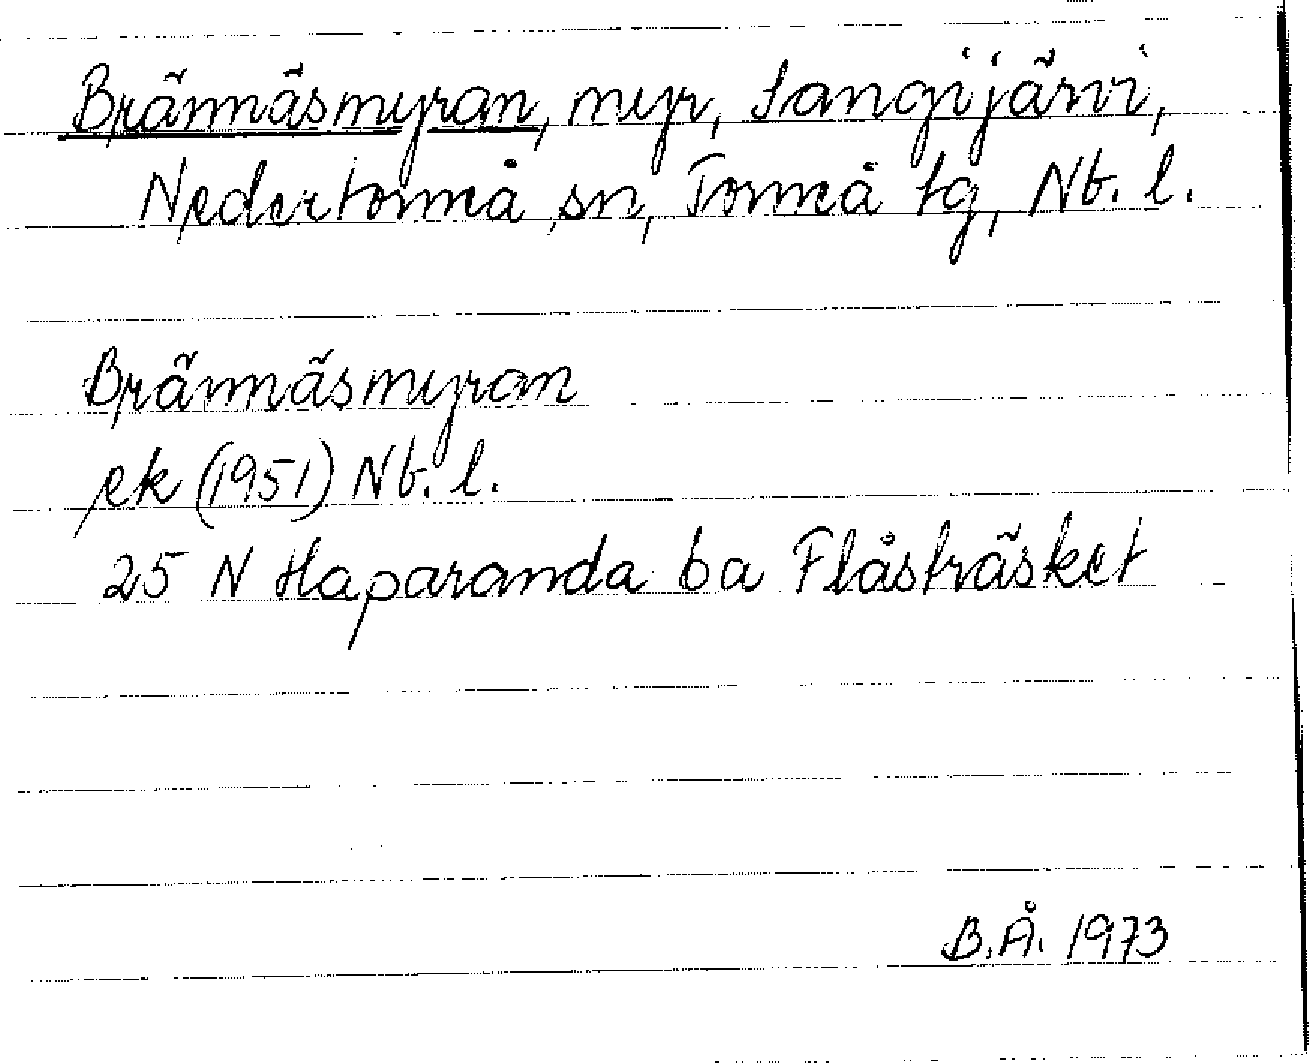 Brännäsmyran, myr, Sangijärvi,
Nedertorneå sn, Torneå tg, Nb. l.
Brännäsmyran
ek (1951) Nb. l.
25 N Haparanda ba Flåsträsket
B.Å. 1973